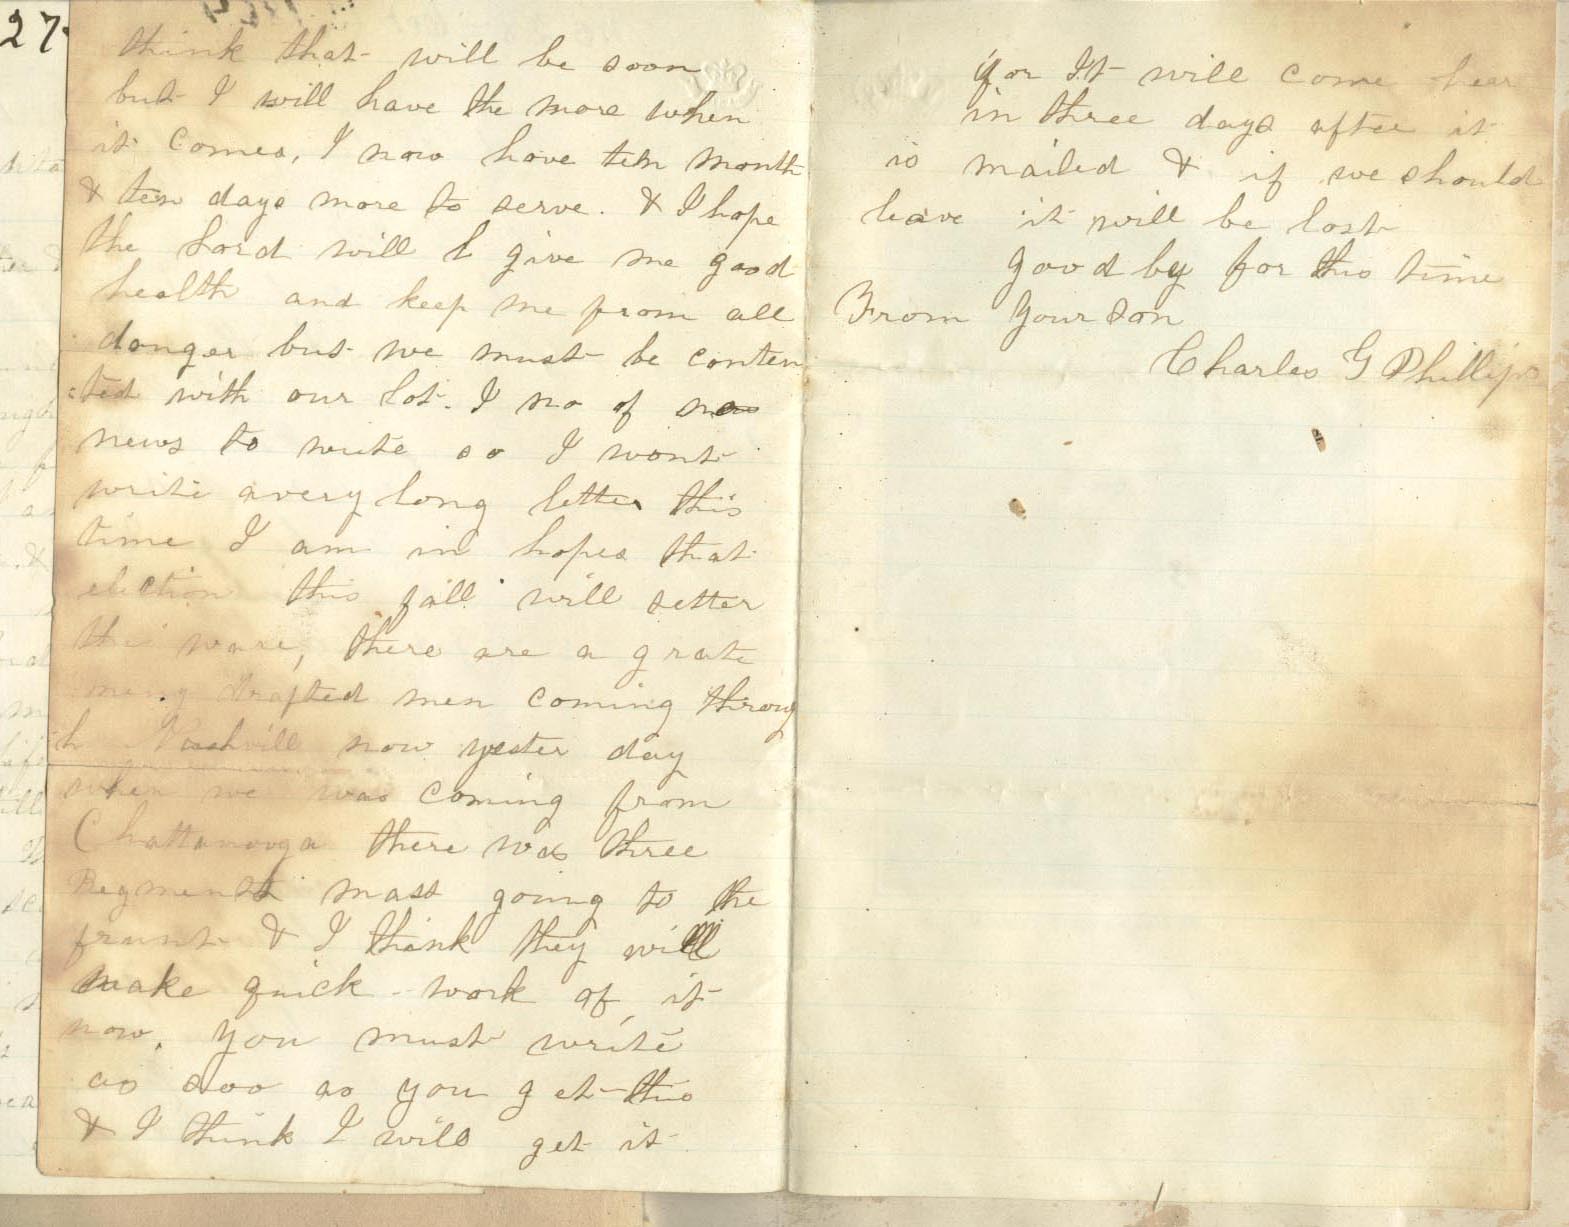 27
think that will be soon
but I will have the more when
it comes, I now have ten month
& ten days more to serve. & I hope
the Lord will give me good
health and keep me from all
danger but we must be conten
ted with our lot. I no of no
news to write so I wont
write a very long letter this
time I am in hopes that
election this fall will setter
the ware, there are a grate
meny drafted men coming throug
h Nashvill now yester day
when we was coming from
Chattanooga there was three
Regments mass going to the
frunt & I think they will
make quick work of it
now. you must write
as soo as you get this
& I think I will get it
for It will come hear
in three days after it
is mailed & if we should
leave it will be lost
good by for this time
From your son
Charles G Phillips